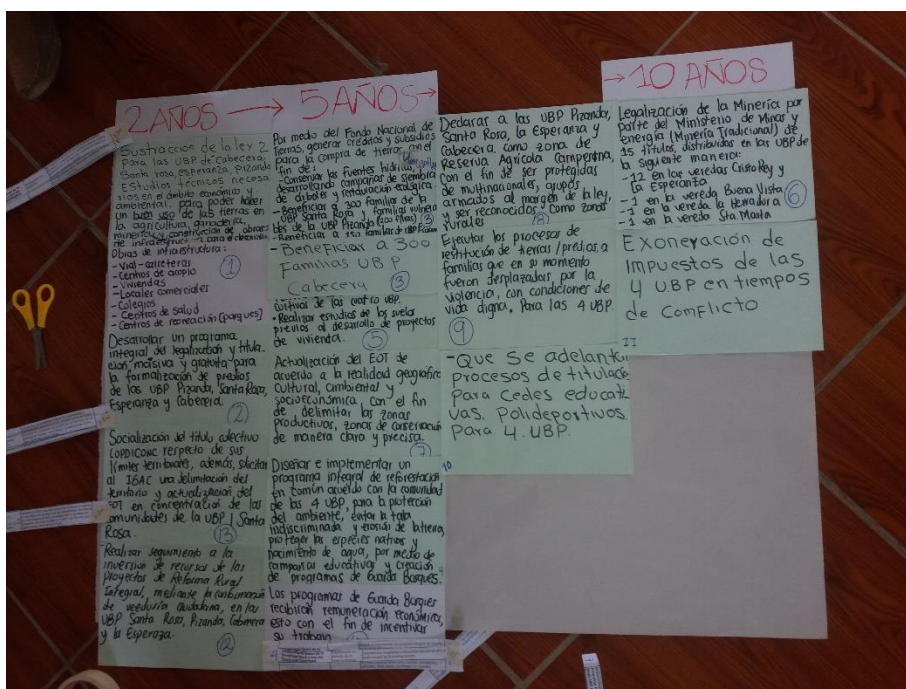 2 AÑOS → 5 AÑOS →
→ 10 AÑOS
Sustracción de la ley 2
Para las UBP de cabecera,
Santa rosa, esperanza, Pizanda
Estudios técnicos necesa
rios en el ámbito económico y
ambiental para poder hacer
un buen uso de las tierras en
la agricultura, ganadería,
minería y construcción de obras
de infraestructura para el desarrollo
Obras de infraestructura:
- Vial - carreteras
- Centros de acopio
- Viviendas
- Locales comerciales
- Colegios
- Centros de salud
- Centros de recreación (parques)
1
Desarrollar un programa
integral de legalización y titula
ción masiva y gratuita para
la formalización de predios
de las UBP Pizanda, Santa Rosa,
Esperanza y Cabecera.
2
Socialización del título colectivo
COPDICONC respecto de sus
límites territoriales, además, solicitar
al IGAC una delimitación del
territorio y actualización del
EOT en concertración de las
comunidades de la UBP / Santa
Rosa.
13
- Realizar seguimiento a la
inversión de recursos de los
Proyectos de Reforma Rural
Integral, mediante la conformación
de veeduría ciudadana, en las
UBP Santa Rosa, Pizanda, Cabecera
y la Esperanza.
12
Por medio del Fondo Nacional de
Tierras, generar créditos y subsidios
para la compra de tierras con el
fin de:
- Conservar las fuentes hídricas,
desarrollando campañas de siembra
de árboles y restauración ecológica
- Beneficiar a 300 familias de la
UBP Santa Rosa y familias vulnera
bles de la UBP Pizanda
3
- Beneficiar a 300
Familias UBP
Cabecera
3
cultivos de las cuatro UBP.
• Realizar estudios de los suelos
previos al desarrollo de proyectos
de vivienda.
5
Actualización del EOT de
acuerdo a la realidad geográfica
cultural, ambiental y
socioeconómica, con el fin
de delimitar las zonas
productivas, zonas de conservación
de manera clara y precisa.
7
Diseñar e implementar un
programa integral de reforestación
en común acuerdo con la comunidad
de las 4 UBP, para la protección
del ambiente, evitar la tala
indiscriminada y erosión de la tierra,
proteger las especies nativas y
nacimiento de agua, por medio de
campañas educativas y creación
de programas de Guarda Bosques.
Los programas de Guarda Bosques
recibirán remuneración económica,
esto con el fin de incentivar
su trabajo
4
Declarar a las UBP Pizanda,
Santa Rosa, la Esperanza y
Cabecera, como zona de
Reserva Agrícola Campesina,
con el fin de ser protegidas
de multinacionales, grupos
armados al margen de la ley,
y ser reconocidos como zonas
rurales
8
Ejecutar los procesos de
restitución de tierras / predios, a
familias que en su momento
fueron desplazados por la
violencia, con condiciones de
vida digna. Para las 4 UBP.
9
- Que se adelanten
procesos de titulación
Para cedes educati
vas. Polideportivos.
Para 4. UBP.
10
Legalización de la Minería por
parte del Ministerio de Minas y
energía (Minería Tradicional) de
15 títulos, distribuidos en las UBP de
la siguiente manera:
- 12 en las veredas Cristo Rey y
la Esperanza
- 1 en la vereda Buena Vista
- 1 en la vereda la Herradura
- 1 en la vereda Sta. Marta
6
Exoneración de
Impuestos de las
4 UBP en tiempos
de comflicto
11